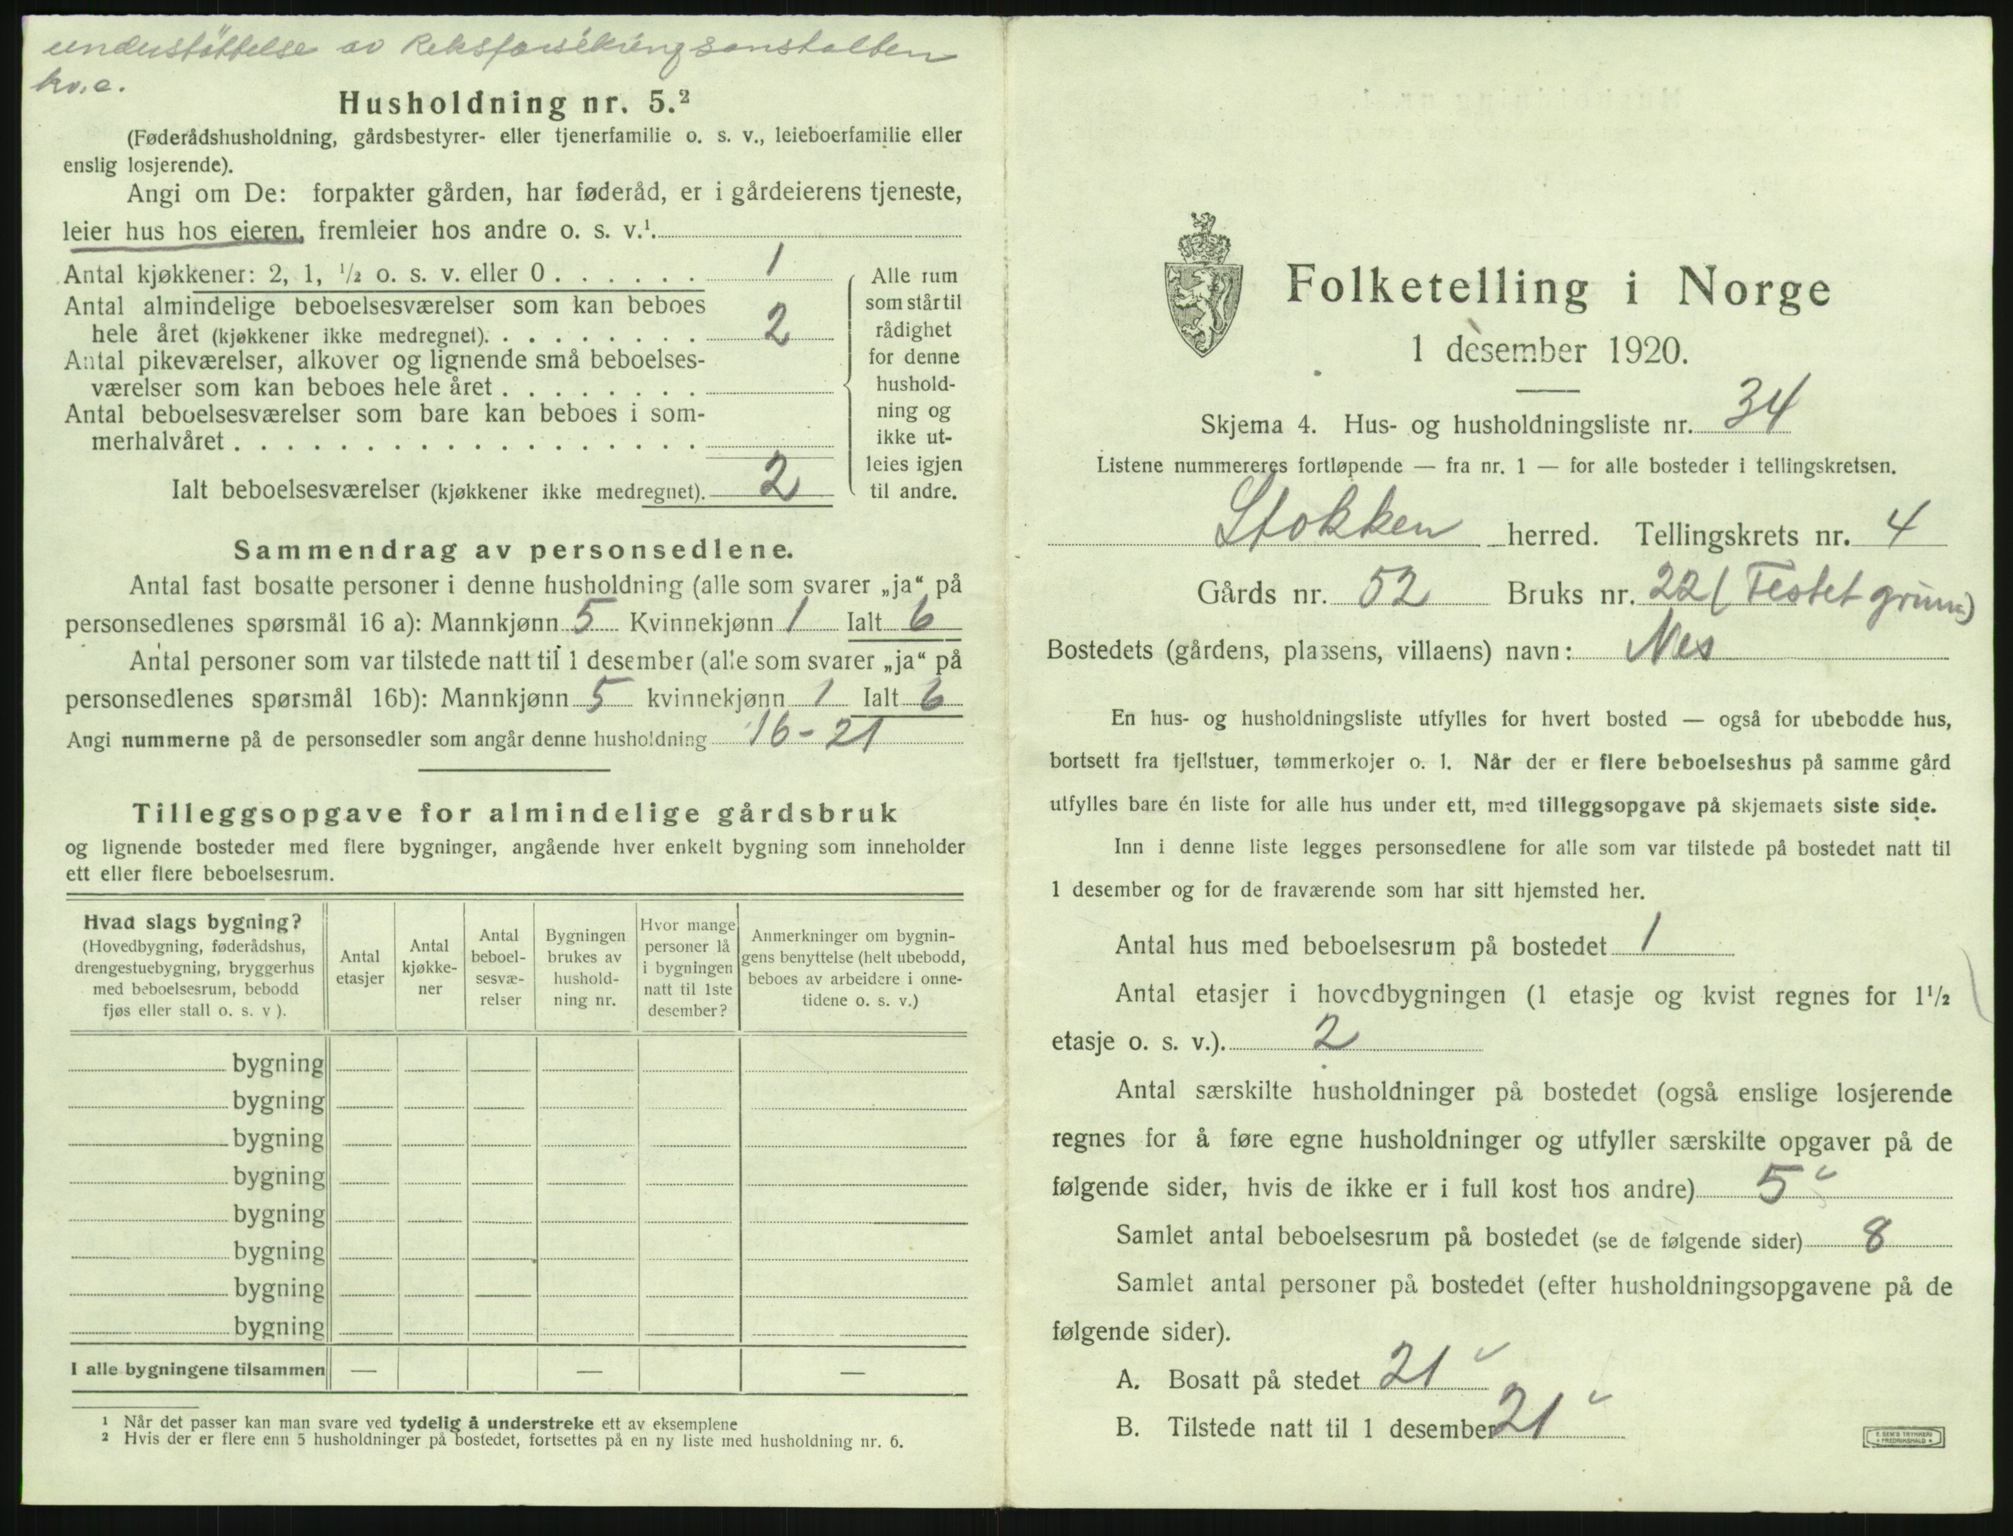 understøttelse av Riksforsikringsanstalten
kv.c.
Husholdning nr. 5.²
(Føderådshusholdning, gårdsbestyrer- eller tjenerfamilie o. s. v., leieboerfamilie eller
enslig losjerende).
Angi om De: forpakter gården, har føderåd, er i gårdeierens tjeneste,
leier hus hos eieren, fremleier hos andre o. s. v.¹.
Antal kjøkkener: 2, 1, ½ o. s. v. eller 0 . . . . . . 1
Antal almindelige beboelsesværelser som kan beboes
hele året (kjøkkener ikke medregnet). . . . . . . . . 2
Antal pikeværelser, alkover og lignende små beboelses-
værelser som kan beboes hele året . . . . . . . .
Antal beboelsesværelser som bare kan beboes i som-
merhalvåret . . . . . . . . . . . . . . . . . .
Ialt beboelsesværelser (kjøkkener ikke medregnet). 2
Alle rum
som står til
rådighet
for denne
hushold-
ning og
ikke ut-
leies igjen
til andre.
Sammendrag av personsedlene.
Antal fast bosatte personer i denne husholdning (alle som svarer „ja“ på
personsedlenes spørsmål 16 a): Mannkjønn 5 Kvinnekjønn 1 Ialt 6
Antal personer som var tilstede natt til 1 desember (alle som svarer „ja“ på
personsedlenes spørsmål 16b): Mannkjønn 5 kvinnekjønn 1 Ialt 6
Angi nummerne på de personsedler som angår denne husholdning 16-21
Tilleggsopgave for almindelige gårdsbruk
og lignende bosteder med flere bygninger, angående hver enkelt bygning som inneholder
ett eller flere beboelsesrum.
Hvad slags bygning?
(Hovedbygning, føderådshus,
drengestuebygning, bryggerhus
med beboelsesrum, bebodd
fjøs eller stall o. s. v ).
Antal
etasjer
Antal
kjøkke-
ner
Antal
beboel-
sesvæ-
relser
Bygningen
brukes av
hushold-
ning nr.
Hvor mange
personer lå
i bygningen
natt til 1ste
desember?
Anmerkninger om bygnin-
gens benyttelse (helt ubebodd,
beboes av arbeidere i onne-
tidene o. s. v.)
bygning
bygning
bygning
bygning
bygning
bygning
bygning
bygning
I alle bygningene tilsammen — — —
¹ Når det passer kan man svare ved tydelig å understreke ett av eksemplene
² Hvis der er flere enn 5 husholdninger på bostedet, fortsettes på en ny liste med husholdning nr. 6.
Folketelling i Norge
1 desember 1920.
Skjema 4. Hus- og husholdningsliste nr. 34
Listene nummereres fortløpende — fra nr. 1 — for alle bosteder i tellingskretsen.
Stokken herred. Tellingskrets nr. 4
Gårds nr. 52 Bruks nr. 22 (Festet grunn)
Bostedets (gårdens, plassens, villaens) navn: Nes
En hus- og husholdningsliste utfylles for hvert bosted — også for ubebodde hus,
bortsett fra fjellstuer, tømmerkojer o. l. Når der er flere beboelseshus på samme gård
utfylles bare én liste for alle hus under ett, med tilleggsopgave på skjemaets siste side.
Inn i denne liste legges personsedlene for alle som var tilstede på bostedet natt til
1 desember og for de fraværende som har sitt hjemsted her.
Antal hus med beboelsesrum på bostedet 1
Antal etasjer i hovedbygningen (1 etasje og kvist regnes for 1½
etasje o. s. v.). 2
Antal særskilte husholdninger på bostedet (også enslige losjerende
regnes for å føre egne husholdninger og utfyller særskilte opgaver på de
følgende sider, hvis de ikke er i full kost hos andre) 5
Samlet antal beboelsesrum på bostedet (se de følgende sider) 8
Samlet antal personer på bostedet (efter husholdningsopgavene på de
følgende sider).
A. Bosatt på stedet 21
B. Tilstede natt til 1 desember 21